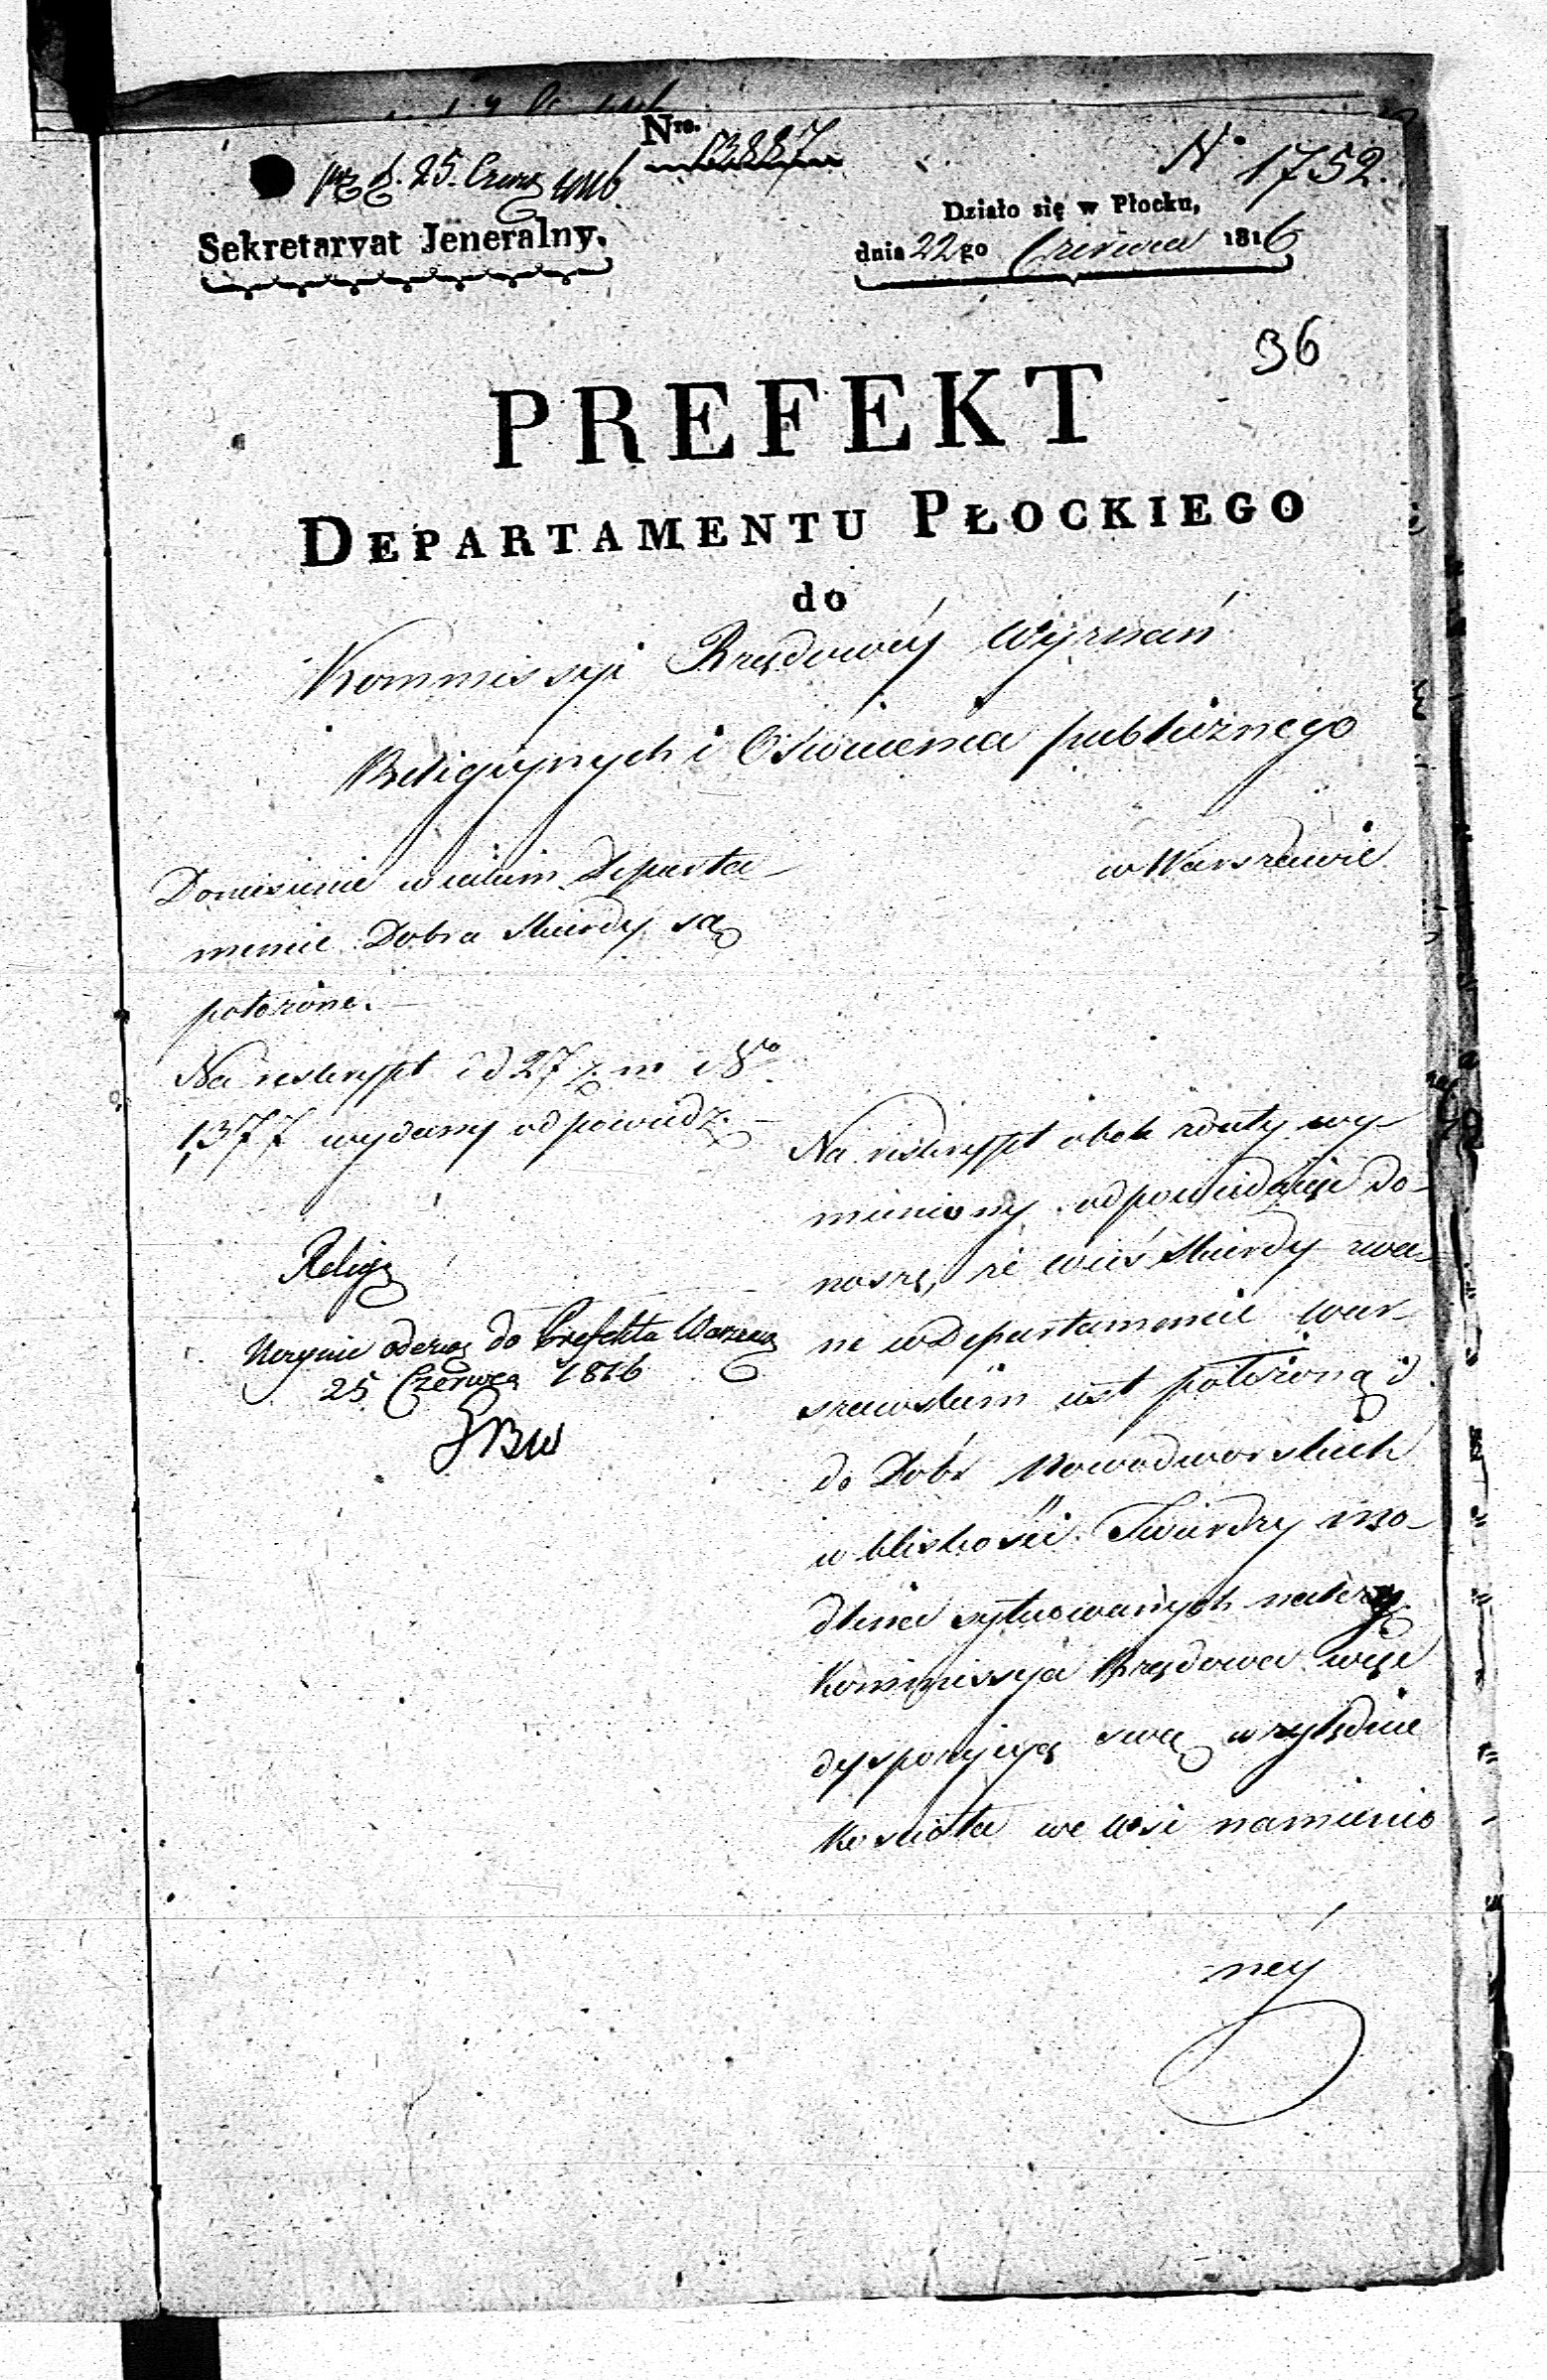 Nro. 13887
N° 1752.
prz d. 25. Czerw 1816.
Sekretaryat Jeneralny.
Działo się w Płocku,
dnia 22go Czerwca 1816
36
PREFEKT
DEPARTAMENTU PŁOCKIEGO
do
Kommissyi Rządowéy Wyznań
Religiynych i Oświecenia publicznego
w Warszawie
Doniesienie w iakim Departa-
mencie Dobra Skierdy są
położone.
Na reskrypt d 27 z. m i Nro
1,377 wydany odpowiedz.
Religi
uczynić odezwę do Prefekta Warszaw
25 Czerwca 1816
Na reskrypt obok zdaty wy-
mieniony odpowiadaiąc do-
noszę, że wieś Skierdy zwa-
na w Departamencie War-
szawskim iest położoną i
do Dóbr Nowodworskich
w bliskości Twierdzy Mo-
dlina sytuowanych należy
Kommissya Rządowa więc
dyspozycyą swą względnie
Kościoła we wsi namienio
néy